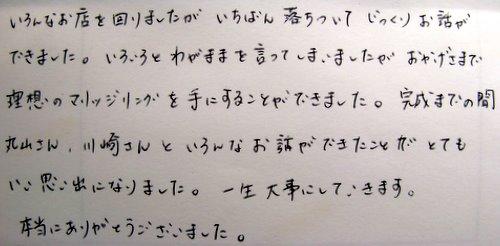 いろんなお店を回りましたが いちばん 落ちついて じっくり お話が
できました。 いろいろと わがままを 言って しまいましたが おかげさまで
理想の マリッジリングを 手にすることができました。 完成までの間
丸山さん、川崎さんと いろんな お話ができたことが とても
いい 思い出になりました。 一生 大事にしていきます。
本当にありがとうございました。